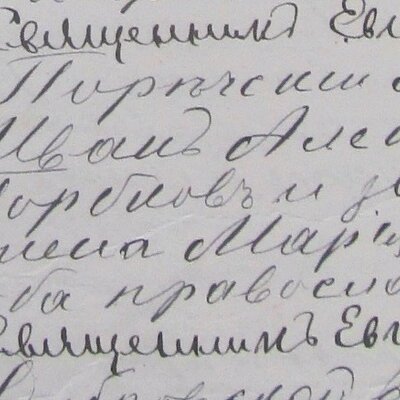 Священникъ Евг
Порѣчский
Иванъ Алек
Горбковъ и за
жена Марія
ба правосла
Священникъ Евг